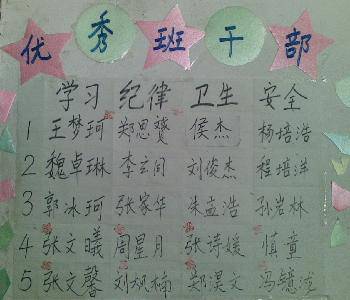 优秀班干部
学习 纪律 卫生 安全
1 王梦珂 郑思赟 侯杰 杨培浩
2 魏卓琳 李玄同 刘俊杰 程培洋
3 郭冰珂 张家华 朱孟浩 孙岩林
4 张文曦 周星月 张诗媛 慎童
5 张文馨 刘飒楠 郑淏文